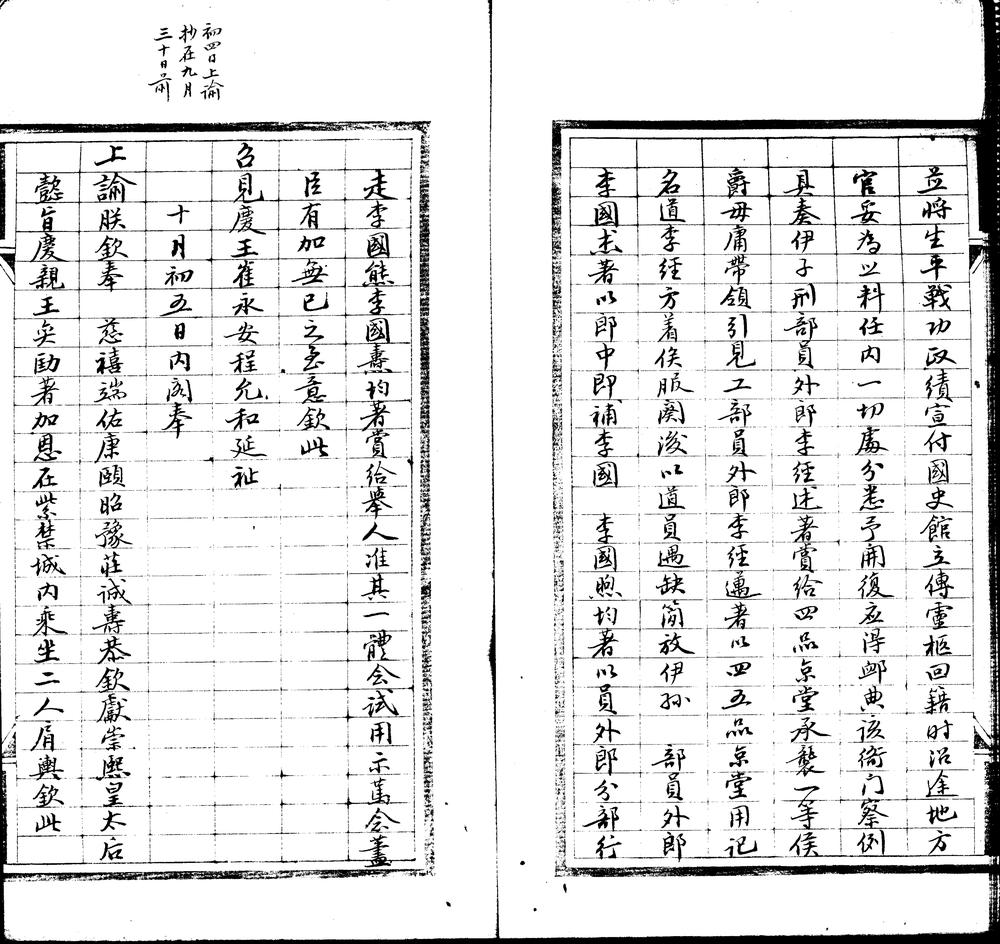 並將生平戰功政績宣付國史館立傳靈柩回籍时沿途地方
官妥為照料任内一切處分悉予開復应得卹典該衙门察例
具奏伊子刑部員外郎李經述著賞给四品京堂承襲一等侯
爵毋庸帶領引見工部員外郎李經邁著以四五品京堂用记
名道李經方着俟服闋後以道員遇缺简放伊孫 部員外郎
李國杰著以郎中即補李國 李國煦均著以員外郎分部行
走李國熊李國燾均著賞给舉人准其一體会试用示萬念藎
臣有加無已之至意欽此
召見慶王崔永安程允和延祉
十月初五日内阁奉
上諭朕欽奉 慈禧端佑康頤昭豫莊诚壽恭欽獻崇熙皇太后
懿旨慶親王奕劻著加恩在紫禁城内乘坐二人肩輿欽此
初四日上諭
抄在九月
三十日前